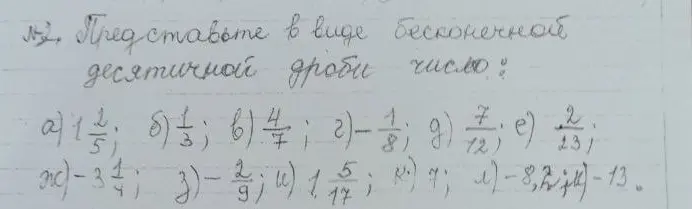 №2. Представьте в виде бесконечной
десятичной дроби число:
а) 1 2/5; б) 1/3; в) 4/7; г) - 1/8; д) 7/12; е) 2/23;
ж) - 3 1/4; з) - 2/9; и) 1 5/17; к) 7; л) - 8,2; м) - 13.